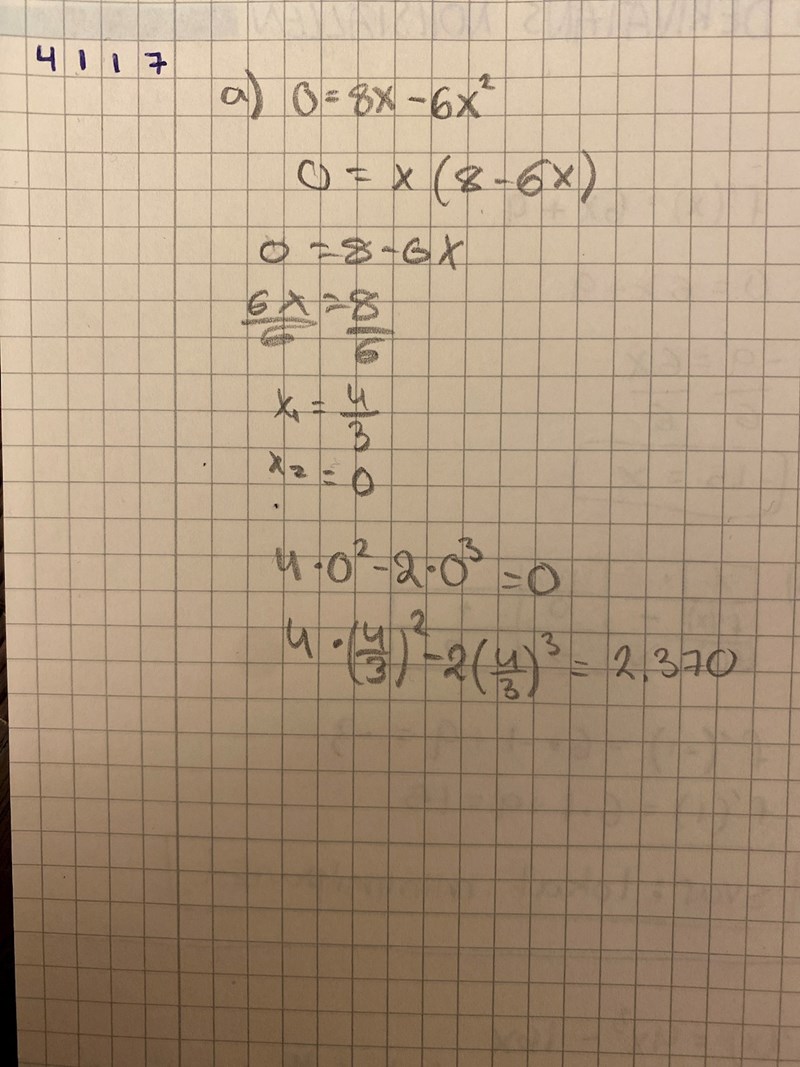 4 1 1 7
a) 0 = 8x - 6x²
0 = x (8 - 6x)
0 = 8 - 6x
6x/6 = 8/6
x₁ = 4/3
x₂ = 0
4 · 0² - 2 · 0³ = 0
4 · (4/3)² - 2 (4/3)³ = 2.370